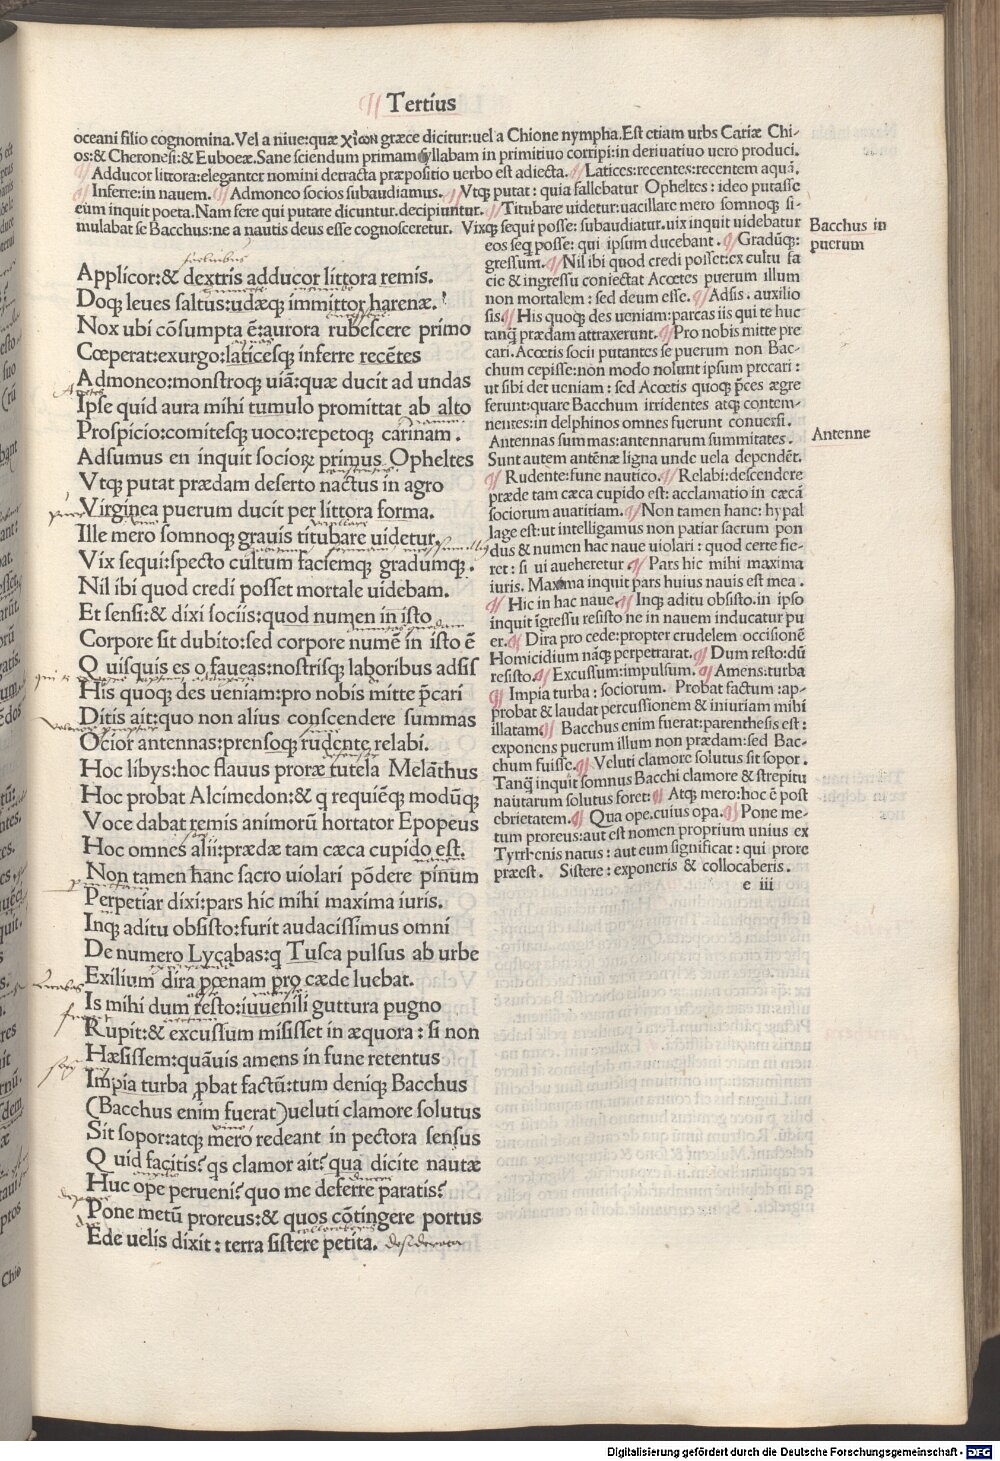 Tertius
oceani filio cognomina.Vel a niue:quæ χιὼν græce dicitur:uel a Chione nympha.Est etiam urbs Cariæ Chi-
os:& Cheronesi:& Euboeæ.Sane sciendum primam syllabam in primitiuo corripi:in deriuatiuo uero produci.
¶ Adducor littora:eleganter nomini detracta præpositio uerbo est adiecta. ¶ Latices:recentes:recentem aquā.
¶ Inferre:in nauem. ¶ Admoneo socios subaudiamus. ¶ Vtq; putat : quia fallebatur Opheltes : ideo putasse
eum inquit poeta.Nam fere qui putare dicuntur.decipiuntur. ¶ Titubare uidetur:uacillare mero somnoq; si-
mulabat se Bacchus:ne a nautis deus esse cognosceretur. Vixq; sequi posse: subaudiatur.uix inquit uidebatur
eos seq posse: qui ipsum ducebant. ¶ Gradūq;:
gressum. ¶ Nil ibi quod credi posset:ex cultu fa
cie & ingressu coniectat Acœtes puerum illum
non mortalem : sed deum esse. ¶ Adsis . auxilio
sis. ¶ His quoq; des ueniam:parcas iis qui te huc
tanq̃ prædam attraxerunt. ¶ Pro nobis mitte pre
cari. Acœtis socii putantes se puerum non Bac-
chum cepisse:non modo nolunt ipsum precari :
ut sibi det ueniam : sed Acœtis quoq; p̄ces ægre
ferunt:quare Bacchum irridentes atq; contem-
nentes:in delphinos omnes fuerunt conuersi.
Antennas summas:antennarum summitates .
Sunt autem antēnæ ligna unde uela dependēt.
¶ Rudente:fune nautico. ¶ Relabi:descendere
præde tam cæca cupido est: acclamatio in cæcā
sociorum auaritiam. ¶ Non tamen hanc: hypal
lage est:ut intelligamus non patiar sacrum pon
dus & numen hac naue uiolari : quod certe fie-
ret : si ui aueheretur . ¶ Pars hic mihi maxima
iuris. Maxima inquit pars huius nauis est mea .
¶ Hic in hac naue. ¶ Inq; aditu obsisto.in ipso
inquit īgressu resisto ne in nauem inducatur pu
er. ¶ Dira pro cede:propter crudelem occisionē
Homicidium nāq; perpetrarat. ¶ Dum resto:dū
resisto. ¶ Excussum:impulsum. ¶ Amens:turba
¶ Impia turba : sociorum. Probat factum :ap-
probat & laudat percussionem & iniuriam mihi
illatam. ¶ Bacchus enim fuerat:parenthesis est :
exponens puerum illum non prædam:sed Bac-
chum fuisse. ¶ Veluti clamore solutus sit sopor .
Tanq̃ inquit somnus Bacchi clamore & strepitu
nautarum solutus foret: ¶ Atq; mero:hoc ē post
ebrietatem. ¶ Qua ope.cuius opa. ¶ Pone me-
tum proreus:aut est nomen proprium unius ex
Tyrrhenis natus : aut eum significat : qui prore
præest . Sistere : exponeris & collocaberis .
e iii
Bacchus in
puerum
Antenne
Applicor:& dextris adducor littora remis.
Doq; leues saltus:udæq; immittor harenæ.
Nox ubi cōsumpta ē:aurora rubescere primo
Cœperat:exurgo:laticesq; inferre recētes
Admoneo:monstroq; uiā:quæ ducit ad undas
Ipse quid aura mihi tumulo promittat ab alto
Prospicio:comitesq; uoco:repetoq; carinam .
Adsumus en inquit socioꝝ primus Opheltes
Vtq; putat prædam deserto nactus in agro
Virginea puerum ducit per littora forma.
Ille mero somnoq; grauis titubare uidetur.
Vix sequi:specto cultum faciemq; gradumq; .
Nil ibi quod credi posset mortale uidebam.
Et sensi:& dixi sociis:quod numen in isto
Corpore sit dubito:sed corpore numē in isto ē
Q uisquis es o faueas:nostrisq; laboribus adsis
His quoq; des ueniam:pro nobis mitte p̄cari
Ditis ait:quo non alius conscendere summas
Ocior antennas:prensoq; rudente relabi.
Hoc libys:hoc flauus proræ tutela Melāthus
Hoc probat Alcimedon:& q requiēq; modūq;
Voce dabat remis animorū hortator Epopeus
Hoc omnes alii:prædæ tam cæca cupido est.
Non tamen hanc sacro uiolari pōdere pinum
Perpetiar dixi:pars hic mihi maxima iuris.
Inq; aditu obsisto:furit audacissimus omni
De numero Lycabas:q Tusca pulsus ab urbe
Exilium dira pœnam pro cæde luebat.
Is mihi dum resto:iuuenili guttura pugno
Rupit:& excussum misisset in æquora : si non
Hæsissem:quāuis amens in fune retentus
Impia turba ꝓbat factū:tum deniq; Bacchus
(Bacchus enim fuerat)ueluti clamore solutus
Sit sopor:atq; mero redeant in pectora sensus
Q uid facitis?qs clamor ait?qua dicite nautæ
Huc ope perueni?quo me deferre paratis?
Pone metū proreus:& quos cōtingere portus
Ede uelis dixit : terra sistere petita.
Digitalisierung gefördert durch die Deutsche Forschungsgemeinschaft - DFG